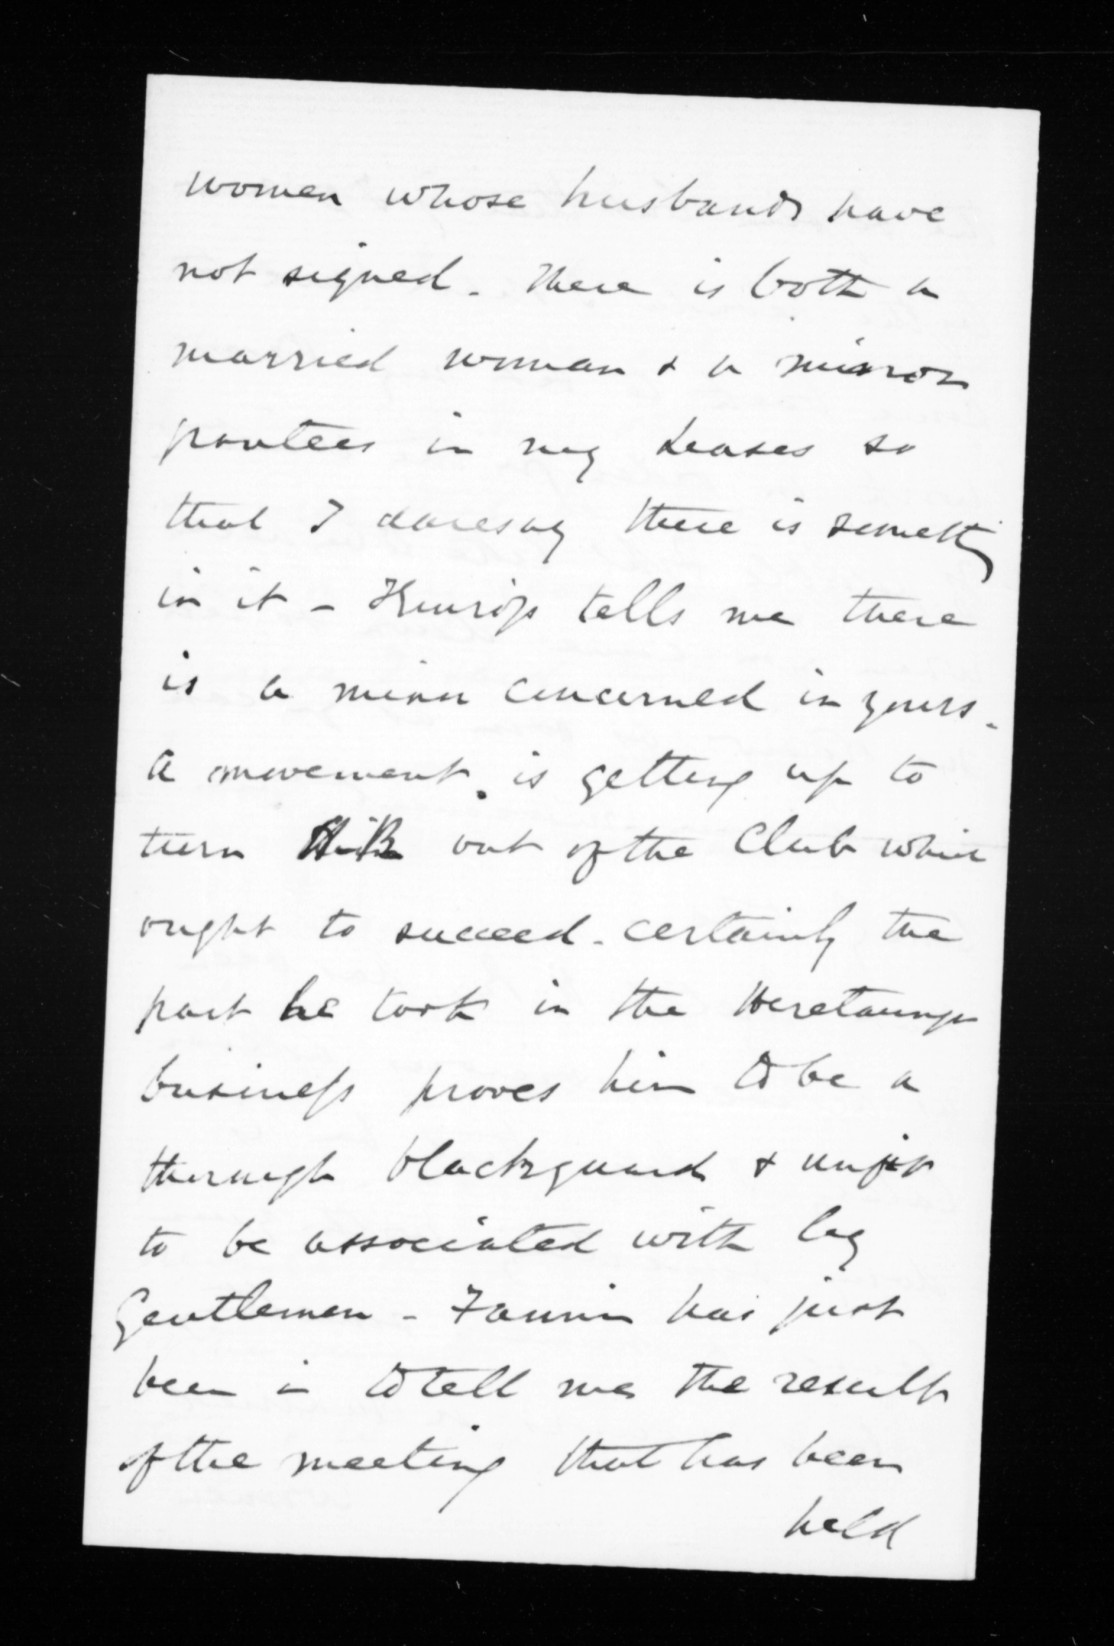 women whose husbands have
not signed. There is both a
married woman & a minor
grantees in my Leases so
that I daresay there is somethg
in it - tells me there
is a minor concerned in yours.
A movement is getting up to
turn out of the Club which
ought to succeed. certainly the
part he took in the Heretaunga
business proves him to be a
thorough blackguard & unfit
to be associated with by
Gentlemen - Fannin has just
been in to tell me the result
of the meeting that has been
held